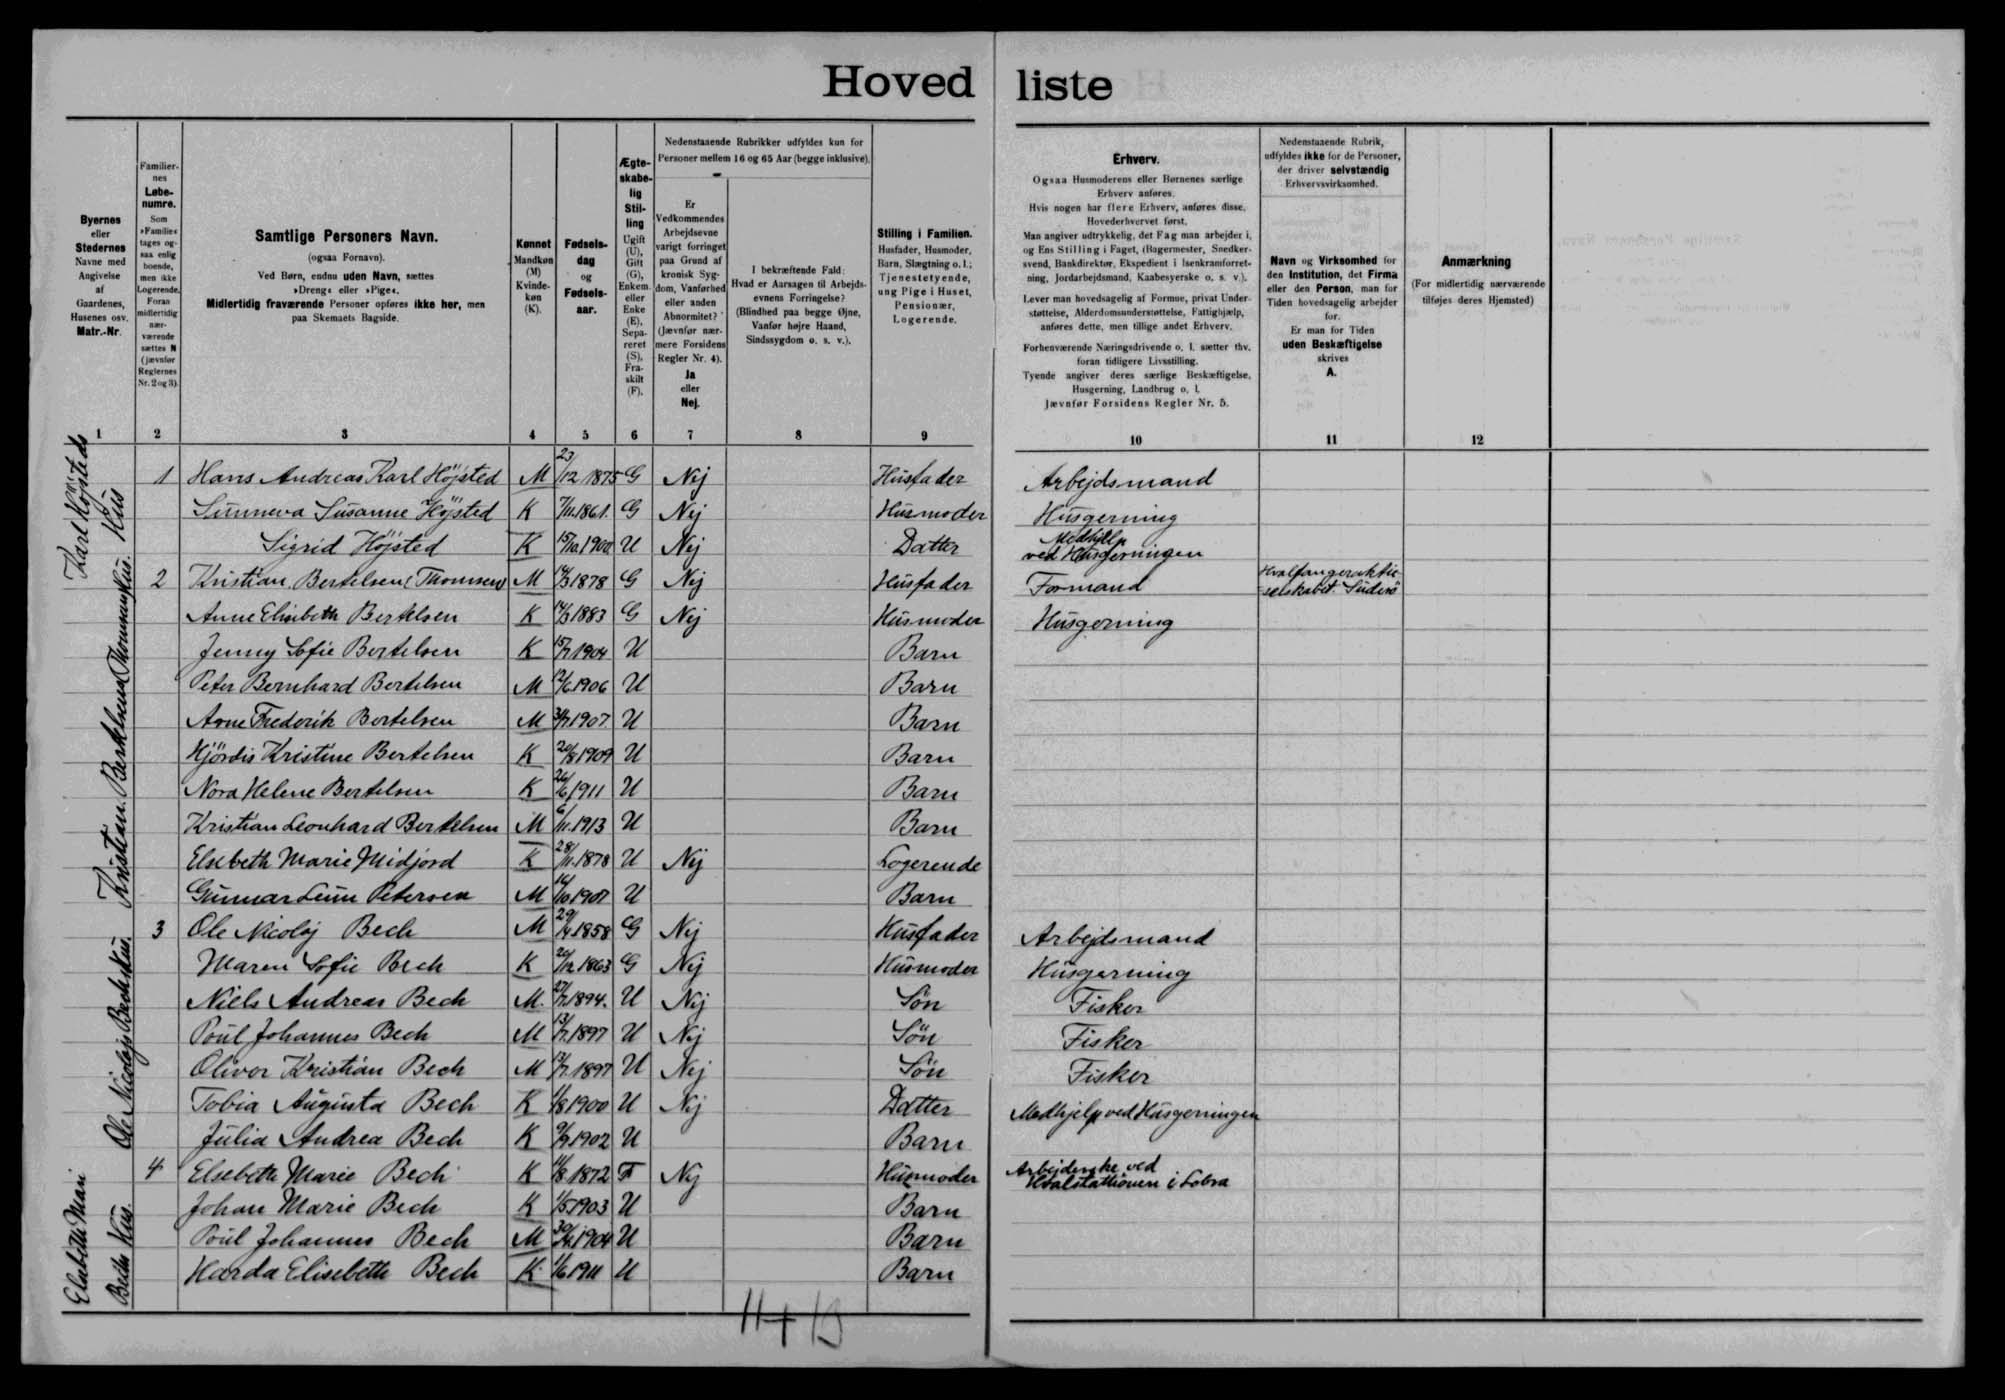 Hoved liste
Byernes
eller
Stedernes
Navne med
Angivelse
af
Gaardenes,
Husenes osv.
Matr.-Nr.
Familier-
nes
Løbe-
numre.
Som
»Familie«
tages og-
saa enlig
boende,
men ikke
Logerende.
Foran
midlertidig
nær-
værende
sættes N
(jævnfør
Reglernes
Nr. 2 og 3).
Samtlige Personers Navn.
(ogsaa Fornavn).
Ved Børn, endnu uden Navn, sættes
»Dreng« eller »Pige«.
Midlertidig fraværende Personer opføres ikke her, men
paa Skemaets Bagside.
Kønnet
Mandkøn
(M)
Kvinde-
køn
(K).
Fødsels-
dag
og
Fødsels-
aar.
Ægte-
skabe-
lig
Stil-
ling
Ugift
(U),
Gift
(G),
Enkem.
eller
Enke
(E),
Sepa-
reret
(S),
Fra-
skilt
(F).
Nedenstaaende Rubrikker udfyldes kun for
Personer mellem 16 og 65 Aar (begge inklusive).
Er
Vedkommendes
Arbejdsevne
varigt forringet
paa Grund af
kronisk Syg-
dom, Vanførhed
eller anden
Abnormitet?
(Jævnfør nær-
mere Forsidens
Regler Nr. 4).
Ja
eller
Nej.
I bekræftende Fald:
Hvad er Aarsagen til Arbejds-
evnens Forringelse?
(Blindhed paa begge Øjne,
Vanfør højre Haand,
Sindssygdom o. s. v.).
Stilling i Familien.
Husfader, Husmoder,
Barn, Slægtning o. l.;
Tjenestetyende,
ung Pige i Huset,
Pensionær,
Logerende.
Erhverv.
Ogsaa Husmoderens eller Børnenes særlige
Erhverv anføres.
Hvis nogen har flere Erhverv, anføres disse,
Hovederhvervet først.
Man angiver udtrykkelig, det Fag man arbejder i,
og Ens Stilling i Faget, (Bagermester, Snedker-
svend, Bankdirektør, Ekspedient i Isenkramforret-
ning, Jordarbejdsmand, Kaabesyerske o. s. v.).
Lever man hovedsagelig af Formue, privat Under-
støttelse, Alderdomsunderstøttelse, Fattighjælp,
anføres dette, men tillige andet Erhverv.
Forhenværende Næringsdrivende o. l. sætter thv.
foran tidligere Livsstilling.
Tyende angiver deres særlige Beskæftigelse,
Husgerning, Landbrug o. l.
Jævnfør Forsidens Regler Nr. 5.
Nedenstaaende Rubrik,
udfyldes ikke for de Personer,
der driver selvstændig
Erhvervsvirksomhed.
Navn og Virksomhed for
den Institution, det Firma
eller den Person, man for
Tiden hovedsagelig arbejder
for.
Er man for Tiden
uden Beskæftigelse
skrives
A.
Anmærkning
(For midlertidig nærværende
tilføjes deres Hjemsted)
1 2 3 4 5 6 7 8 9 10 11 12
Karl Höjsteds
Hus
1 Hans Andreas Karl Höjsted M 23/12 1875 G Nej Husfader Arbejdsmand
Sunneva Susanne Höjsted K 7/11.1861. G Nej Husmoder Husgerning
Sigrid Höjsted K 15/10.1900 U Nej Datter Medhjelp
ved Husgerningen
Kristian Bertelsens (Thomsens) Hus.
2 Kristian Bertelsen (Thomsen) M 14/3 1878 G Nej Husfader Formand Hvalfangeraktie-
selskabet Suderö
Anne Elisabeth Bertelsen K 14/3 1883 G Nej Husmoder Husgerning
Jenny Sofie Bertelsen K 15/7 1904 U Barn
Peter Bernhard Bertelsen M 12/6.1906 U Barn
Arne Frederik Bertelsen M 1907. U Barn
Hjördis Kristine Bertelsen K 20/8 1909 U Barn
Nora Helene Bertelsen K 26/6 1911 U Barn
Kristian Leonhard Bertelsen M 6/11.1913 U Barn
Elsebeth Marie Midjord K 28/11.1878 U Nej Logerende
Gunnar Petersen M 16/10 1907 U Barn
Ole Nicolejs Bechs Hus.
3 Ole Nicolej Bech M 29/4 1858 G Nej Husfader Arbejdsmand
Maren Sofie Bech K 20/12 1863 G Nej Husmoder Husgerning
Niels Andreas Bech M. 27/7.1894. U Nej Sön Fisker
Poul Johannes Bech M 13/7.1897 U Nej Sön Fisker
Oliver Kristian Bech M 13/7.1897 U Nej Sön Fisker
Tobia Augusta Bech K 1/8 1900 U Nej Datter Medhjelp ved Husgerningen
Julia Andrea Bech K 9/9 1902 U Barn
Elsebeth Mari
Bechs Hus.
4 Elsebeth Marie Bech K 11/8.1872 F Nej Husmoder Arbejderske ved
Hvalstationen i Lobra
Johan Marie Bech K 1/5.1903 U Barn
Poul Johannes Bech M 1904 U Barn
Harda Elisebeth Bech K. 1/6 1911 U Barn
11+13